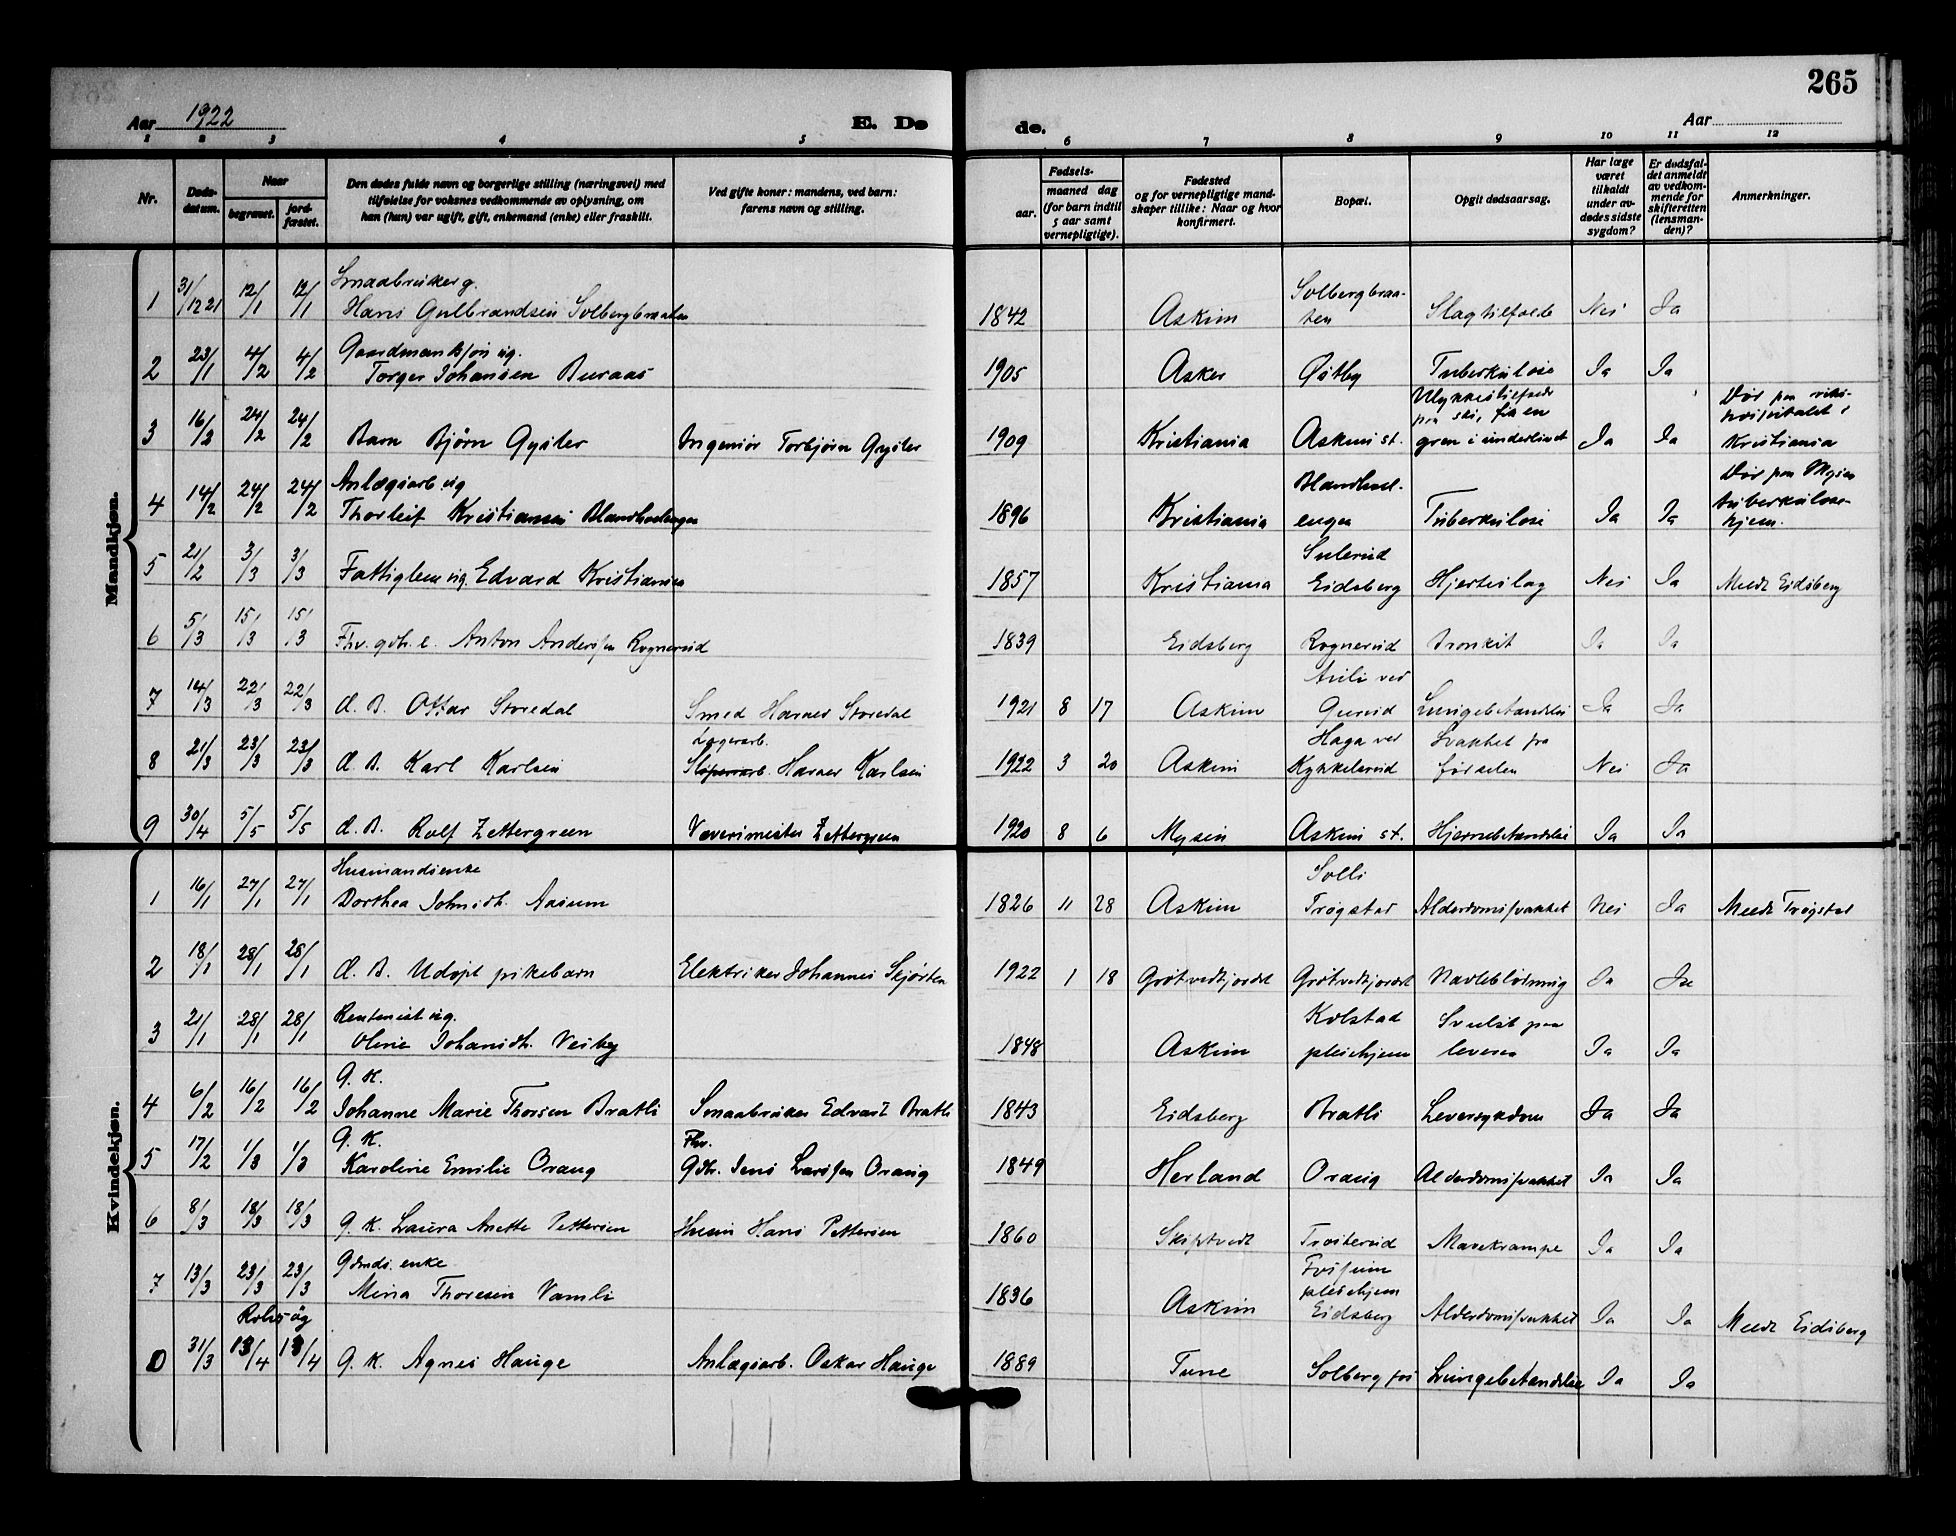 265
Aar 1922
E. Dø
de.
Aar
1 2 3 4 5 6 7 8 9 10 11 12
Nr.
Døds-
datum.
Naar
begravet.
jord-
fæstet.
Den dødes fulde navn og borgerlige stilling (næringsvei) med
tilføielse for voksnes vedkommende av oplysning, om
han (hun) var ugift, gift, enkemand (enke) eller fraskilt.
Ved gifte koner: mandens, ved barn:
farens navn og stilling.
Fødsels-
aar.
maaned dag
(for barn indtil
5 aar samt
vernepligtige).
Fødested
og for vernepligtige mand-
skaper tillike: Naar og hvor
konfirmert.
Bopæl.
Opgit dødsaarsag.
Har læge
været
tilkaldt
under av-
dødes sidste
sygdom?
Er dødsfal-
det anmeldt
av vedkom-
mende for
skifteretten
(lensman-
den)?
Anmerkninger.
Mandkjøn.
Smaabruker g.
1 31/12 21 12/1 12/1 Hans Gulbrandsen Solbergbraaten 1842 Askim Solbergbraa-
ten Slagtilfælde Nei Ja
Gaardmandssøn ug.
2 23/1 4/2 4/2 Torger Johansen Buraas 1905 Asker Østby Tuberkulose Ja Ja
3 16/2 24/2 24/2 Barn Bjørn Gysler Ingeniør Torbjørn Gysler 1909 Kristiania Askim st. Ulykkestilfælde
paa ski, fik en
gren i underlivet Ja Ja Død paa riks-
hospitalet i
Kristiania
Anlægsarb. ug
4 14/2 24/2 24/2 Thorleif Kristiansen Blandholengen 1896 Kristiania Blandhol-
engen Tuberkulose Ja Ja Død paa Mysen
tuberkulose-
hjem.
5 21/2 3/3 3/3 Fattiglem ug. Edvard Kristiansen 1857 Kristiania Sulerud
Eidsberg Hjerteslag Nei Ja Meldt Eidsberg
6 5/3 15/3 15/3 Fhv. gdbr. e. Anton Anderssen Rognerud 1839 Eidsberg Rognerud Bronkit Ja Ja
7 14/3 22/3 22/3 d. B. Ottar Storedal Smed Harald Storedal 1921 8 17 Askim ved
Gurud Lungebetændelse Ja Ja
Lagerarb.
8 21/3 23/3 23/3 d. B. Karl Karlsen Karlsen 1922 3 20 Askim Haga ved
Kykkelsrud Svakhet fra
fødselen Nei Ja
9 30/4 5/5 5/5 d. B. Rolf Zettergreen Vævermester Zettergreen 1920 8 6 Mysen Askim st. Hjernebetændelse Ja Ja
Kvindekjøn.
Husmandsenke
1 16/1 27/1 27/1 Dorthea Johnsdt. Aasum 1826 11 28 Askim Solli
Trøgstad Alderdomssvakhet Nei Ja Meldt Trøgstad
2 18/1 28/1 28/1 d. B. Udøpt pikebarn Elektriker Johannes Skjørten 1922 1 18 Grøtvedtjordet Grøtvedtjordet Navleblødning Ja Ja
Rentenist ug.
3 21/1 28/1 28/1 Oline Johansdt. Veiby 1848 Askim Kolstad
pleiehjem Svulst paa
leveren Ja Ja
G. K.
4 6/2 16/2 16/2 Johanne Marie Thorsen Bratli Smaabruker Edvart Bratli 1843 Eidsberg Bratli Leversykdom Ja Ja
G. K. Fhv.
5 17/2 1/3 1/3 Karoline Emilie Oraug Gdbr. Jens Larssen Oraug 1849 Herland Oraug Alderdomssvakhet Ja Ja
6 8/3 18/3 18/3 G. K. Laura Anette Pettersen Husm Hans Pettersen 1860 Skiptvedt Trøsterud Mavekrampe Ja Ja
Gdmds. enke
7 13/3 23/3 23/3 Mina Thoresen Vamli 1836 Askim Fossum
pleiehjem
Eidsberg Alderdomssvakhet Ja Ja Meldt Eidsberg
Rolvsøy
31/3 13/4 13/4 G. K. Agnes Hauge Anlægsarb. Oskar Hauge 1889 Tune Solbergfos Lungebetændelse Ja Ja